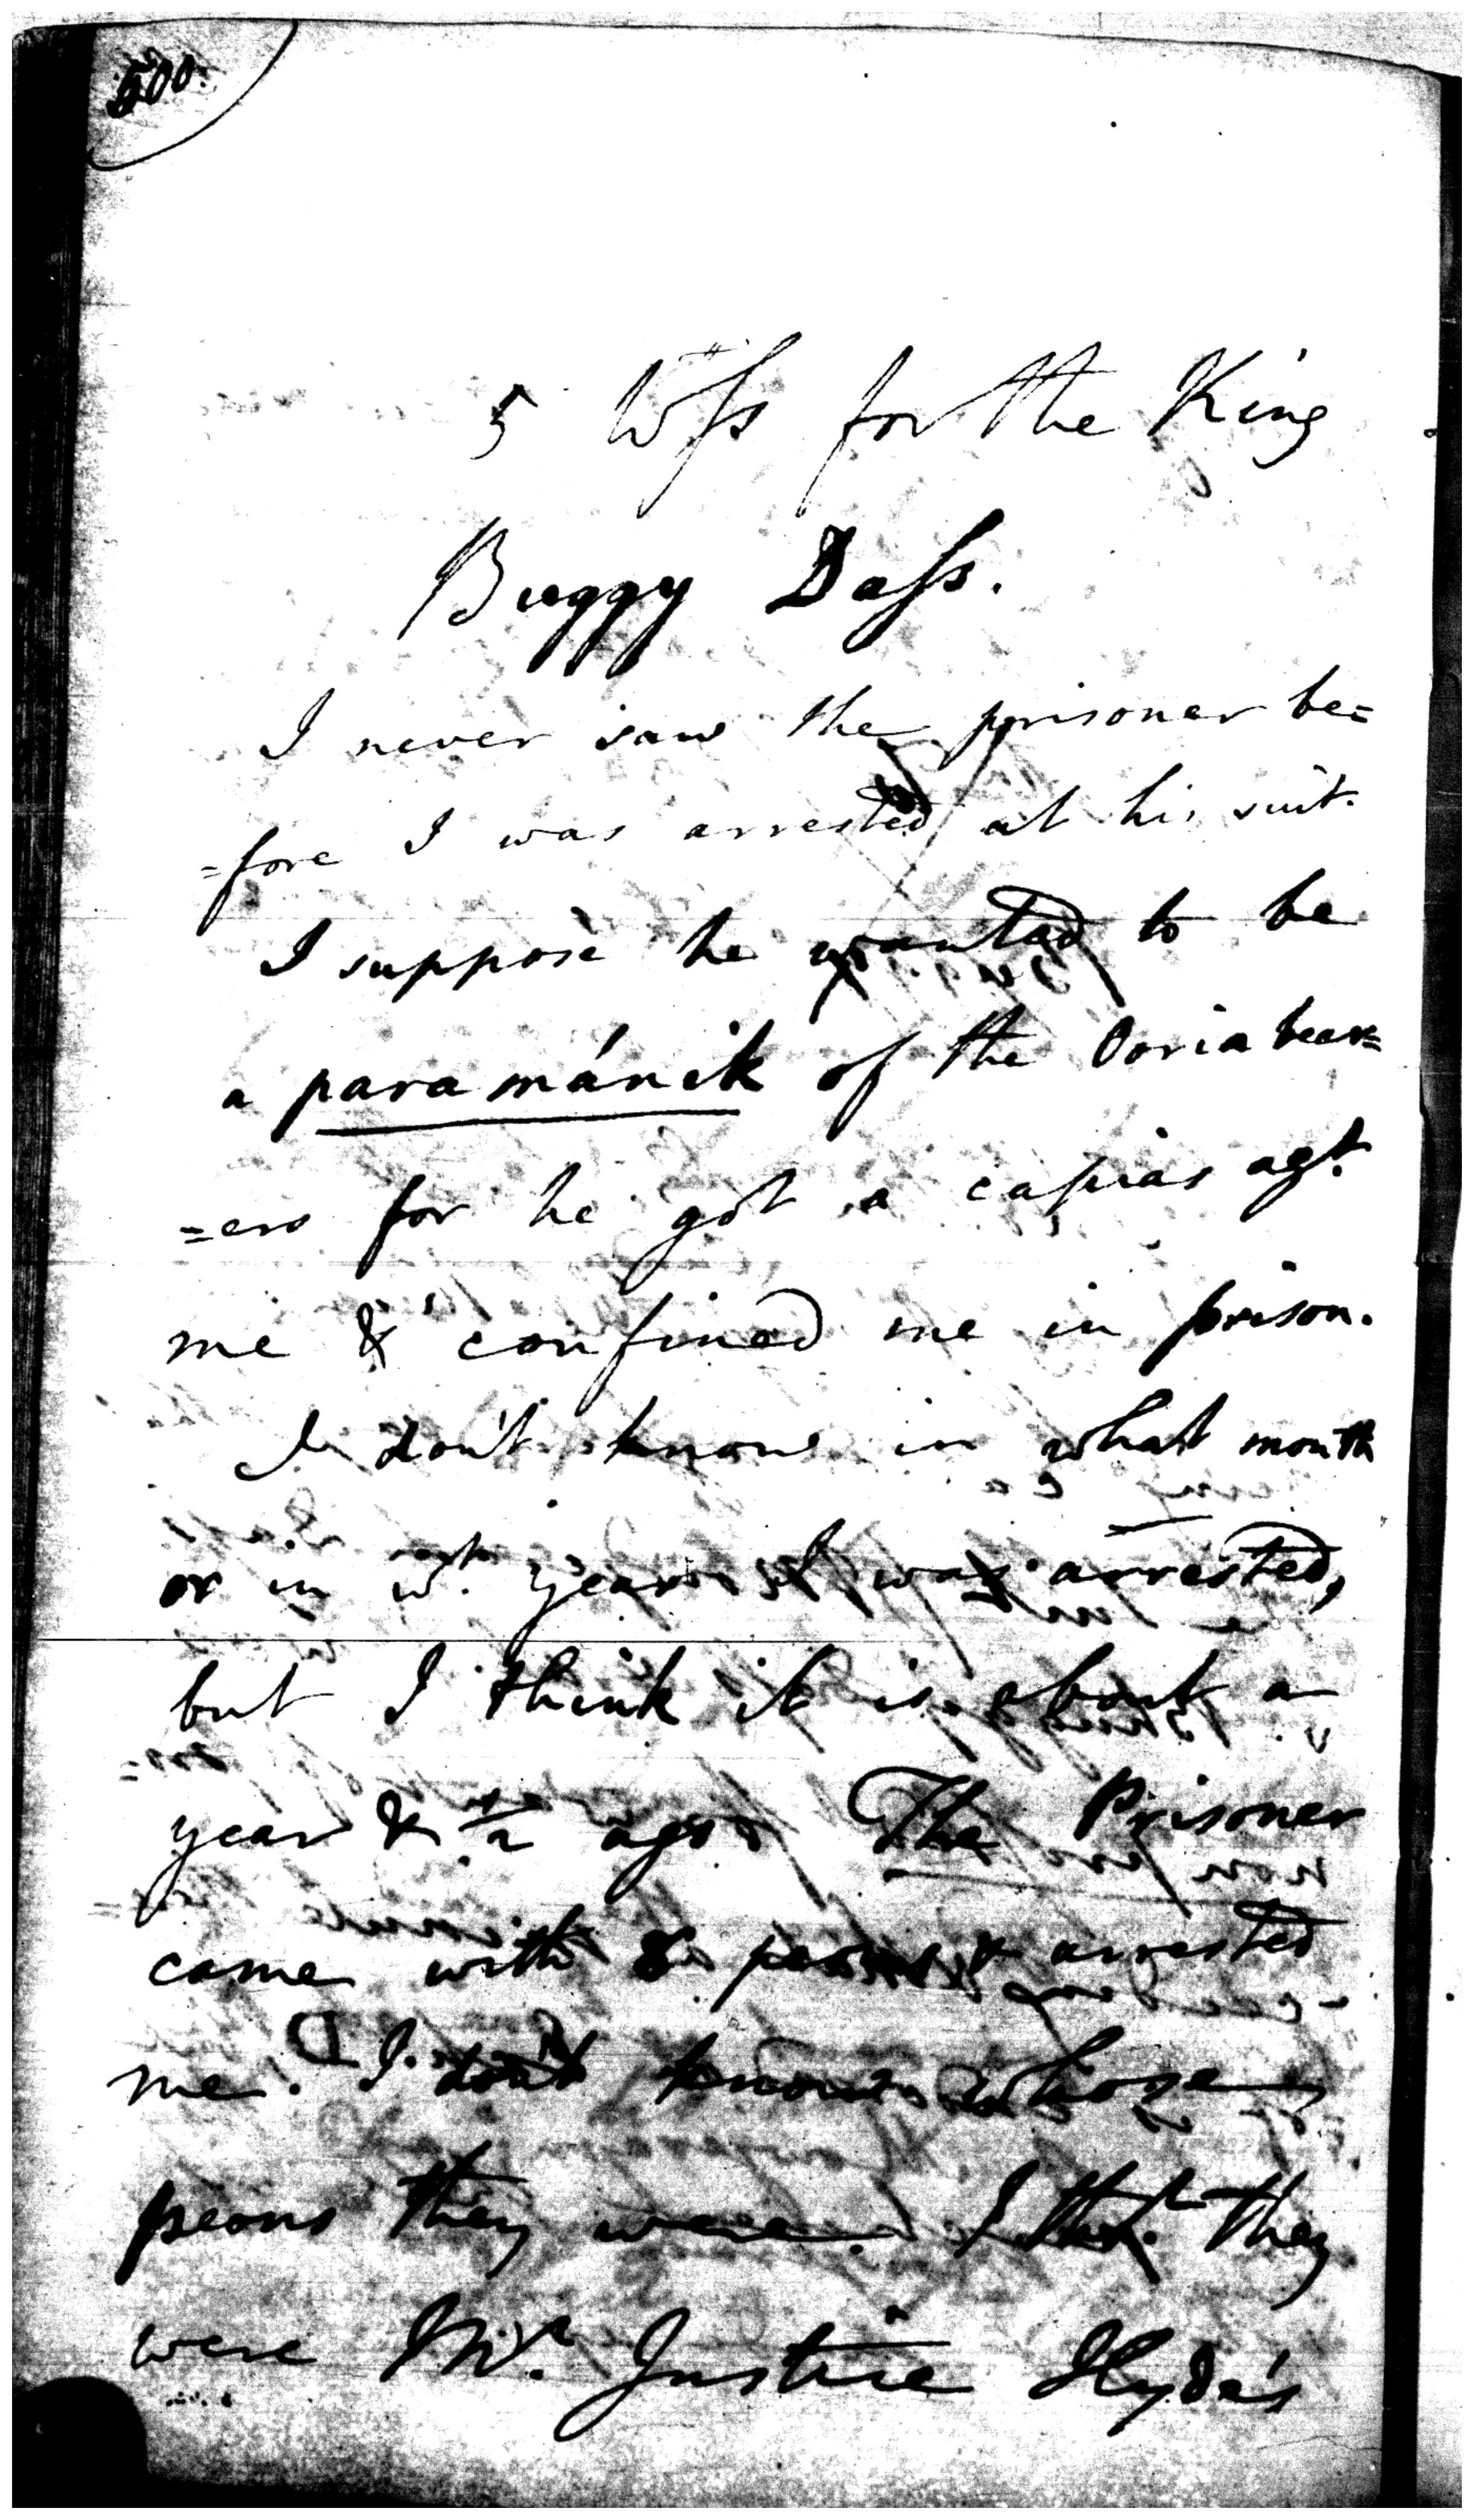 500.
5 Wſs for the King
Buggy Daſs.
I never saw the prisoner be=
=fore I was arrested at his suit.
I suppose he wanted to be
a paramánik of the Ooria bear=
=ers for he got a capias agt.
me & confined me in prison.
I don't know in what month
or in wt. year I was arrested,
but I think it is about a
year & ½ ago. The Prisoner
came with peons & arrested
me. I don't know whose
peons they were. I tht. they
were Mr. Justice Hyde's